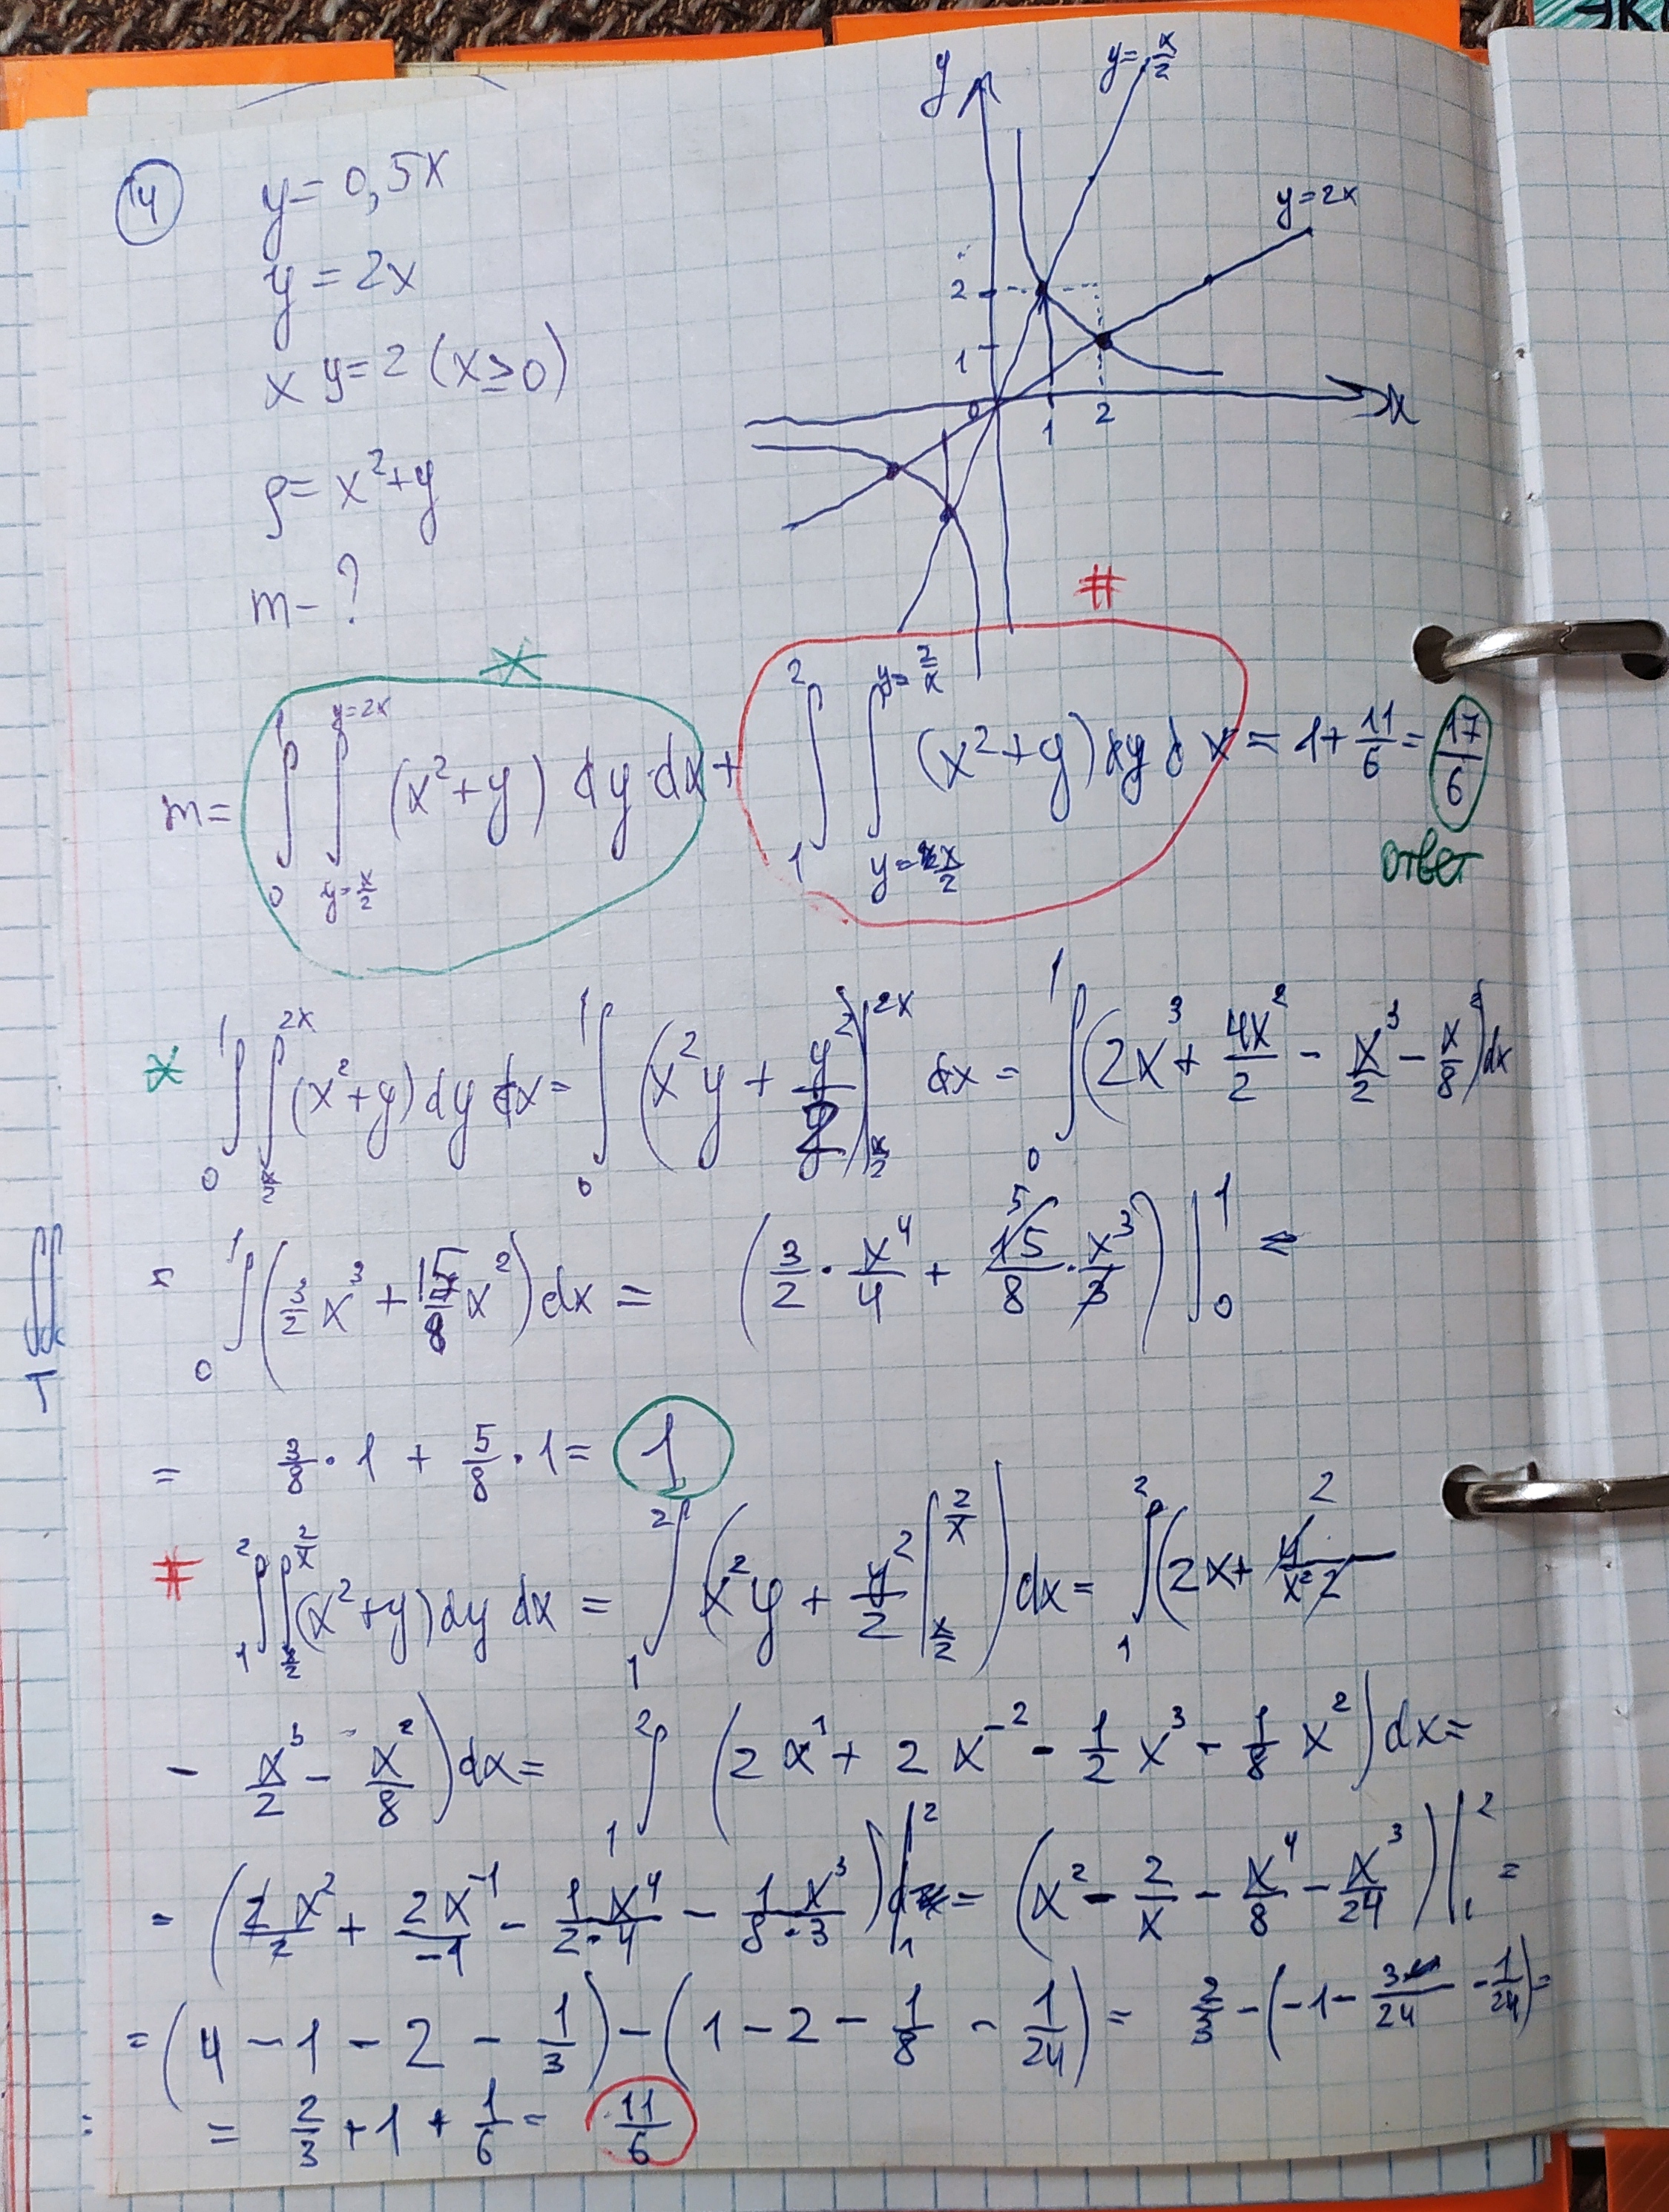 ЭК
14
y = 0,5x
y = 2x
xy = 2 (x ≥ 0)
ρ = x² + y
m - ?
y
y = x/2
y = 2x
2
1
0
1
2
x
*
#
m = ∫₀¹ ∫_{y=x/2}^{y=2x} (x² + y) dy dx + ∫₁² ∫_{y=x/2}^{y=2/x} (x² + y) dy dx = 1 + 11/6 = 17/6
ответ
* ∫₀¹ ∫_{x/2}^{2x} (x² + y) dy dx = ∫₀¹ (x²y + y²/2)|_{x/2}^{2x} dx = ∫₀¹ (2x³ + 4x²/2 - x³/2 - x²/8) dx
= ∫₀¹ (3/2 x³ + 15/8 x²) dx = (3/2 · x⁴/4 + 15/8 · x³/3)|₀¹ =
= 3/8 · 1 + 5/8 · 1 = 1
# ∫₁² ∫_{x/2}^{2/x} (x² + y) dy dx = ∫₁² (x²y + y²/2 |_{x/2}^{2/x}) dx = ∫₁² (2x + 4/(x² 2) -
- x³/2 - x²/8) dx = ∫₁² (2x¹ + 2x⁻² - 1/2 x³ - 1/8 x²) dx =
= (2x²/2 + 2x⁻¹/-1 - 1·x⁴/(2·4) - 1·x³/(8·3))|₁² = (x² - 2/x - x⁴/8 - x³/24)|₁² =
= (4 - 1 - 2 - 1/3) - (1 - 2 - 1/8 - 1/24) = 2/3 - (-1 - 3/24 - 1/24) =
= 2/3 + 1 + 1/6 = 11/6